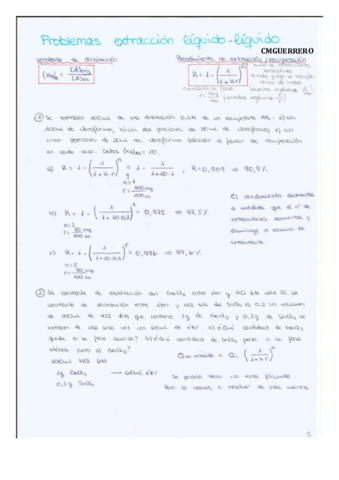 Problemas extracción líquido-líquido
CMGUERRERO
Constante de distribución
Rendimiento de extracción / recuperación
(KD)A = [A]org / [A]ac
R = 1 - (1 / (1+K·r))^n
r = Vorg / Vac
① Se extraen 100mL de una disolución 0,1M de un compuesto A: a) con
100mL de cloroformo; b) con dos porciones de 50mL de cloroformo; c) con
cinco porciones de 20mL de cloroformo. Calcular el factor de recuperación
en cada caso. Datos (KD)A = 10.
a) R = 1 - (1 / (1+K·r))^n = 1 - 1 / (1+10·1) , R = 0,909 ⇒ 90,9%
n=1
r = 100 / 100
El rendimiento aumenta
a medida que el nº de
extracciones aumenta y
disminuye el volumen de
extractante.
b) R = 1 - = 0,975 ⇒ 97,5%
n=2
c) R = 1 - = 0,996 ⇒ 99,6%
n=5
② La constante de distribución del GaCl3 entre éter y HCl 6M vale 52. La
constante de distribución entre éter y HCl 6M del SnCl4 es 0,2. Un volumen
de 100mL de HCl 6M que contiene 1g de GaCl3 y 0,5g de SnCl4 se
extraen de una sola vez con 60mL de éter. a) ¿Qué cantidad de GaCl3
queda en la fase acuosa? b) ¿Qué cantidad de SnCl4 pasa a la fase
etérea junto al GaCl3?
100mL HCl 6M
1g GaCl3 → 60mL éter
0,5g SnCl4
(1 / (1+K·r))^n
Se podría hacer con esta fórmula.
Pero lo vamos a resolver de otra manera
1